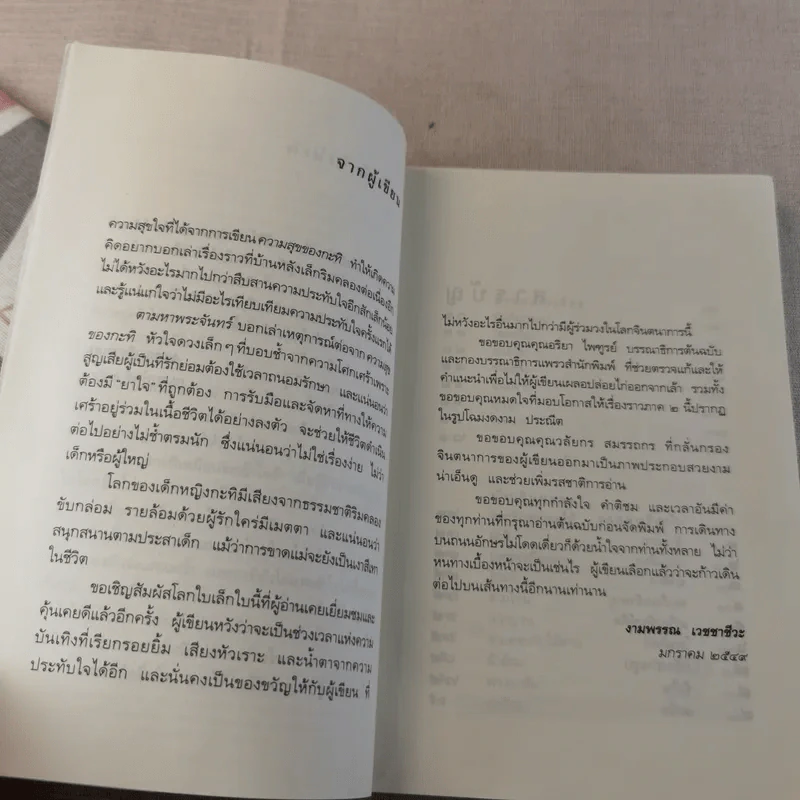 จากผู้เขียน
ความสุขใจที่ได้จากการเขียน ความสุขของกะทิ ทำให้เกิดความ
คิดอยากบอกเล่าเรื่องราวที่บ้านหลังเล็กริมคลองต่อเนื่องอีก
ไม่ได้หวังอะไรมากไปกว่าสืบสานความประทับใจอีกสักเล็กน้อย
และรู้แน่แก่ใจว่าไม่มีอะไรเทียบเทียมความประทับใจครั้งแรกได้
ตามหาพระจันทร์ บอกเล่าเหตุการณ์ต่อจาก ความสุข
ของกะทิ หัวใจดวงเล็กๆ ที่บอบช้ำจากความโศกเศร้าเพราะ
สูญเสียผู้เป็นที่รักย่อมต้องใช้เวลาถนอมรักษา และแน่นอนว่า
ต้องมี "ยาใจ" ที่ถูกต้อง การรับมือและจัดหาที่ทางให้ความ
เศร้าอยู่ร่วมในเนื้อชีวิตได้อย่างลงตัว จะช่วยให้ชีวิตดำเนิน
ต่อไปอย่างไม่ช้ำตรมนัก ซึ่งแน่นอนว่าไม่ใช่เรื่องง่าย ไม่ว่า
เด็กหรือผู้ใหญ่
โลกของเด็กหญิงกะทิมีเสียงจากธรรมชาติริมคลอง
ขับกล่อม รายล้อมด้วยผู้รักใคร่มีเมตตา และแน่นอนว่า
สนุกสนานตามประสาเด็ก แม้ว่าการขาดแม่จะยังเป็นเงาสีเทา
ในชีวิต
ขอเชิญสัมผัสโลกใบเล็กใบนี้ที่ผู้อ่านเคยเยี่ยมชมและ
คุ้นเคยดีแล้วอีกครั้ง ผู้เขียนหวังว่าจะเป็นช่วงเวลาแห่งความ
บันเทิงที่เรียกรอยยิ้ม เสียงหัวเราะ และน้ำตาจากความ
ประทับใจได้อีก และนั่นคงเป็นของขวัญให้กับผู้เขียน ที่
ไม่หวังอะไรอื่นมากไปกว่ามีผู้ร่วมวงในโลกจินตนาการนี้
ขอขอบคุณคุณอริยา ไพฑูรย์ บรรณาธิการต้นฉบับ
และกองบรรณาธิการแพรวสำนักพิมพ์ ที่ช่วยตรวจแก้และให้
คำแนะนำเพื่อไม่ให้ผู้เขียนเผลอปล่อยไก่ออกจากเล้า รวมทั้ง
ขอขอบคุณหมดใจที่มอบโอกาสให้เรื่องราวภาค ๒ นี้ปรากฏ
ในรูปโฉมงดงาม ประณีต
ขอขอบคุณคุณวลัยกร สมรรถกร ที่กลั่นกรอง
จินตนาการของผู้เขียนออกมาเป็นภาพประกอบสวยงาม
น่าเอ็นดู และช่วยเพิ่มรสชาติการอ่าน
ขอขอบคุณทุกกำลังใจ คำติชม และเวลาอันมีค่า
ของทุกท่านที่กรุณาอ่านต้นฉบับก่อนจัดพิมพ์ การเดินทาง
บนถนนอักษรไม่โดดเดี่ยวก็ด้วยน้ำใจจากท่านทั้งหลาย ไม่ว่า
หนทางเบื้องหน้าจะเป็นเช่นไร ผู้เขียนเลือกแล้วว่าจะก้าวเดิน
ต่อไปบนเส้นทางนี้อีกนานเท่านาน
งามพรรณ เวชชาชีวะ
มกราคม ๒๕๔๙